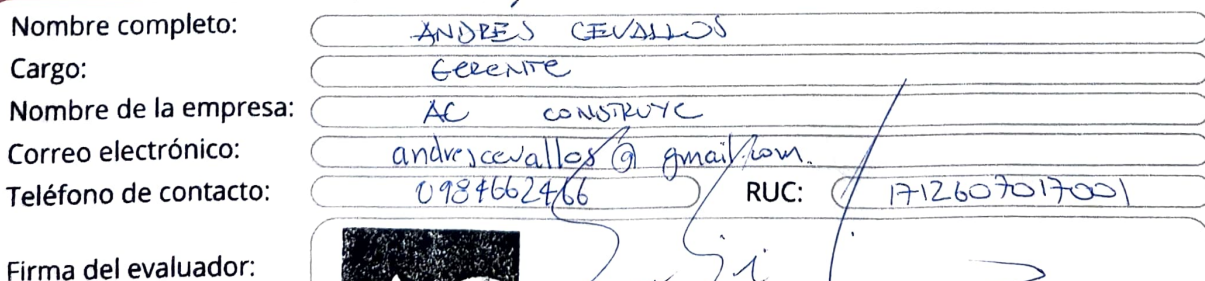 Nombre completo: ANDRES CEVALLOS
Cargo: Gerente
Nombre de la empresa: AC CONSTRUYE
Correo electrónico: andrescevallos@gmail.com.
Teléfono de contacto: 0984662466 RUC: 1712607017001
Firma del evaluador: